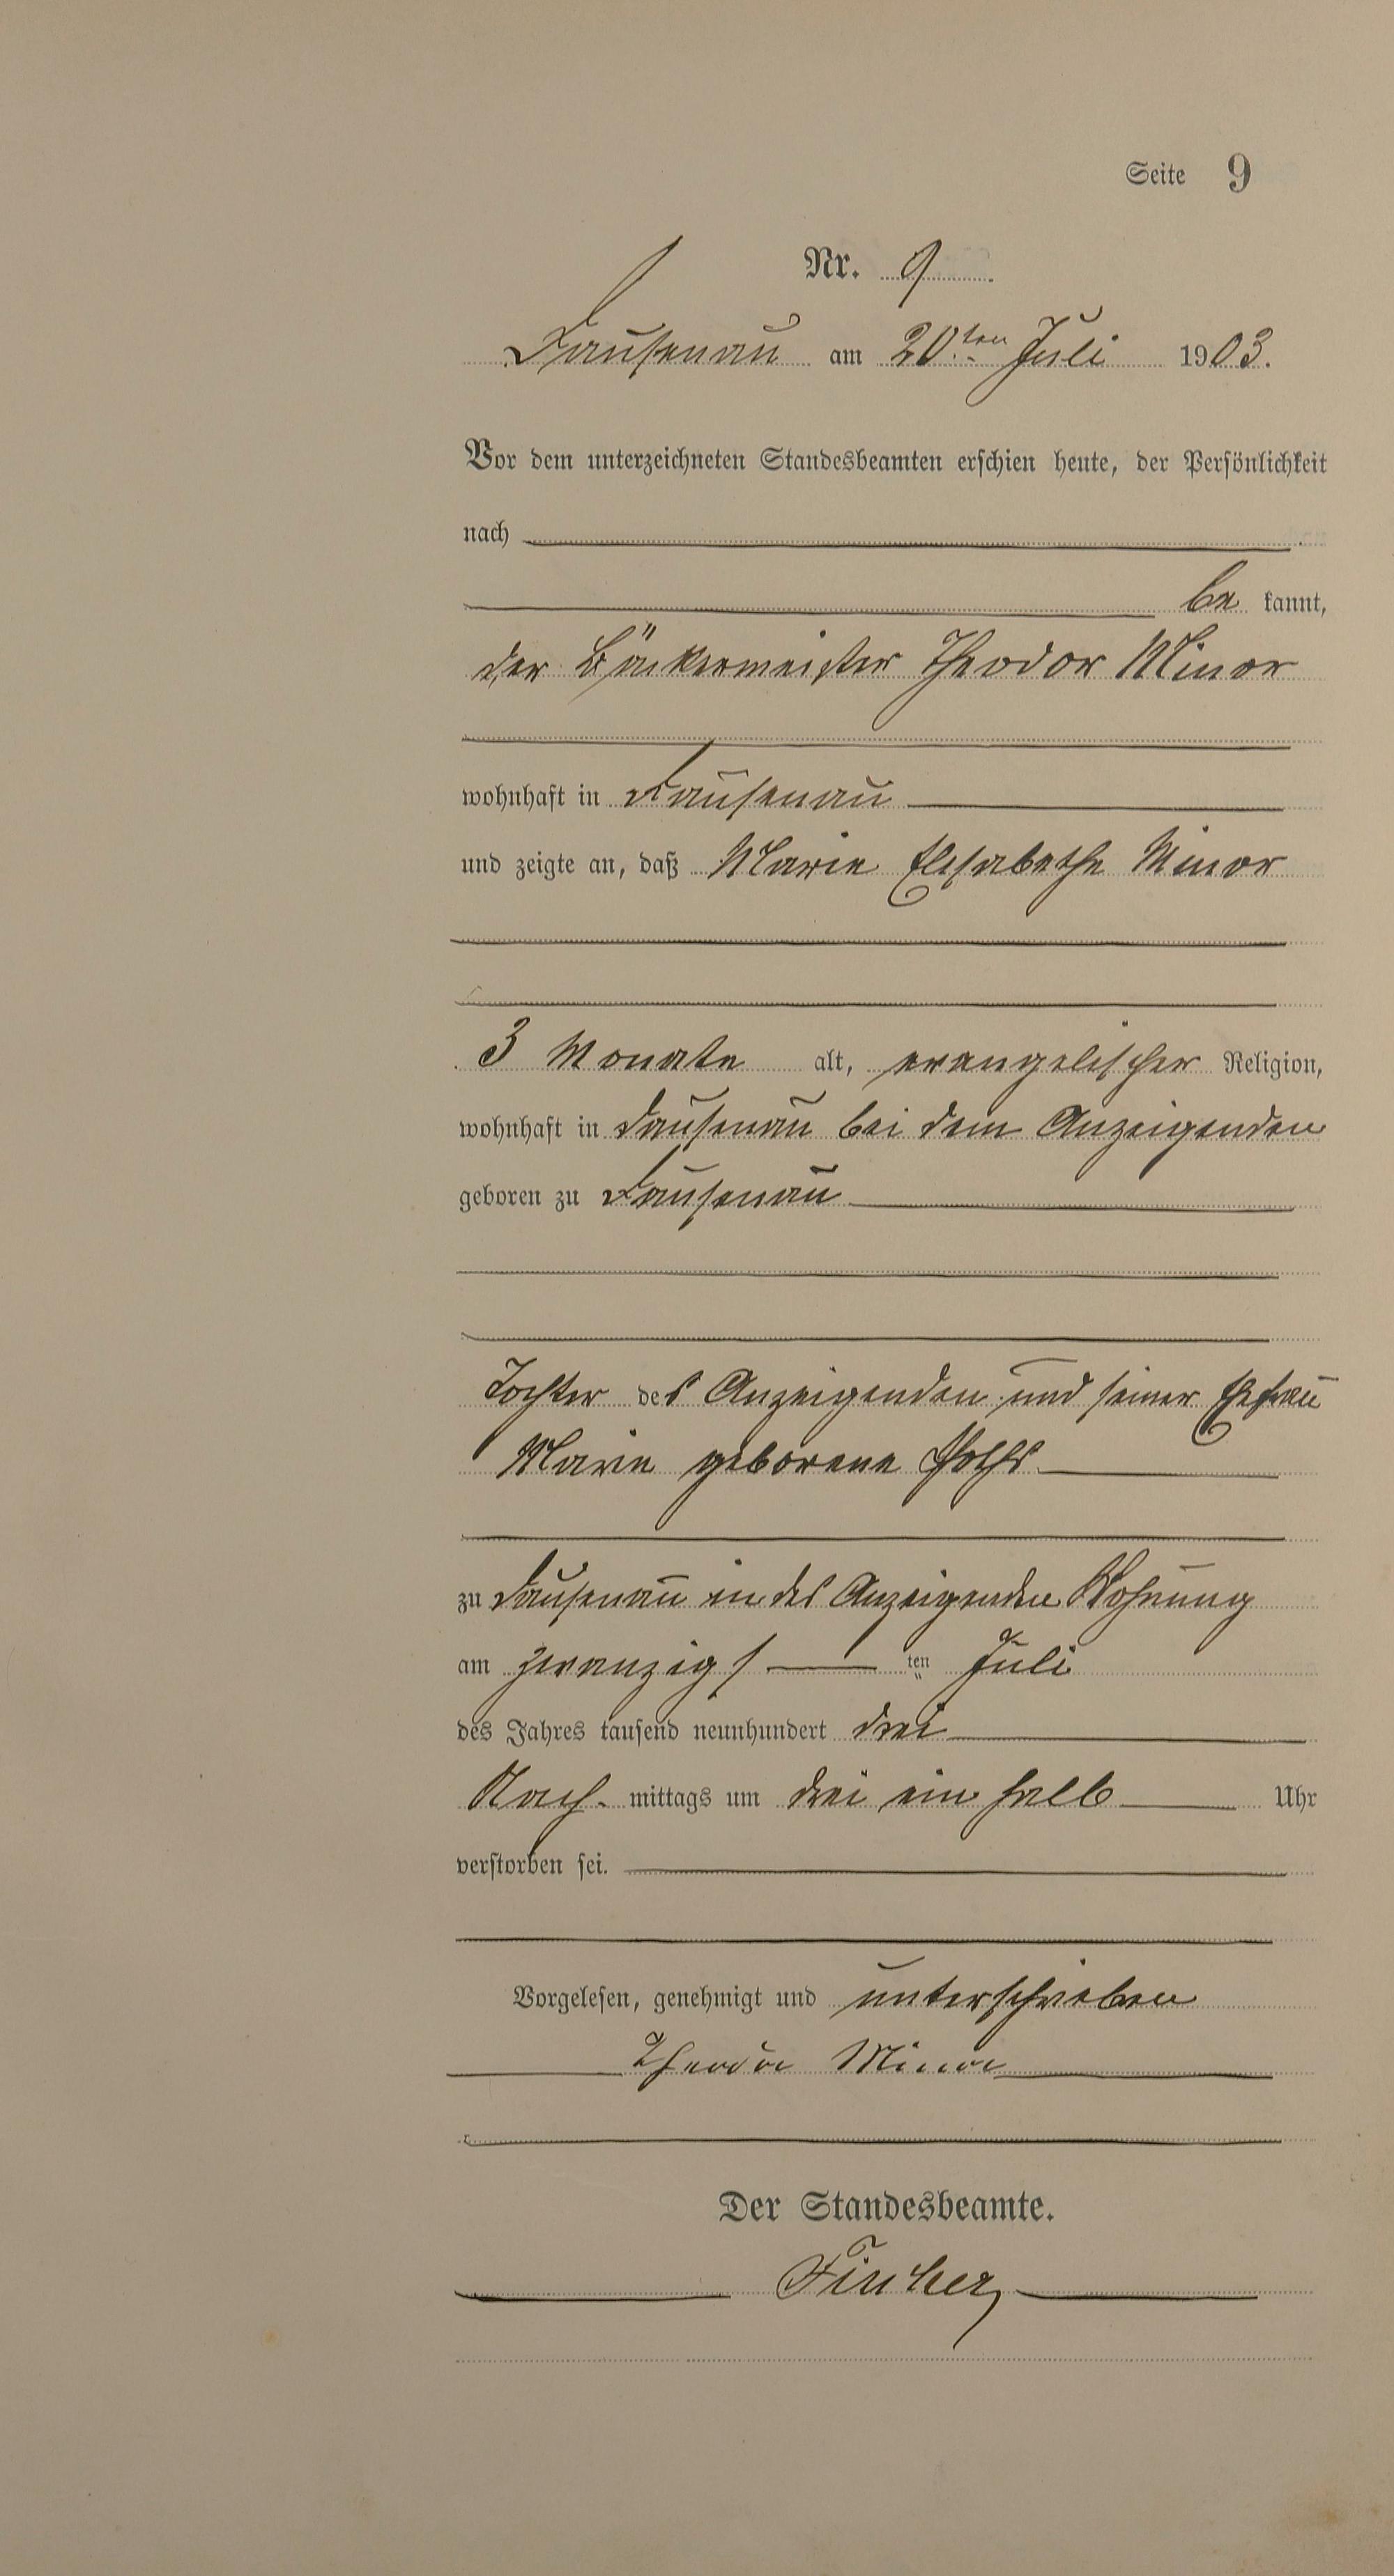 Seite 9
Nr. 9
Dausenau am 20.ten Juli 1903.
Vor dem unterzeichneten Standesbeamten erschien heute, der Persönlichkeit
nach
be kannt,
der Bäckermeister Theodor Minor
wohnhaft in Dausenau
und zeigte an, daß Marie Elisabethe Minor
3 Monate alt, evangelischer Religion,
wohnhaft in Dausenau bei dem Anzeigenden
geboren zu Dausenau
Tochter des Anzeigenden und seiner Ehefrau
Marie geborene
zu Dausenau in des Anzeigenden Wohnung
am zwanzigs ten Juli
des Jahres tausend neunhundert drei
Nach mittags um drei ein halb Uhr
verstorben sei.
Vorgelesen, genehmigt und unterschrieben
Theodor Minor
Der Standesbeamte.